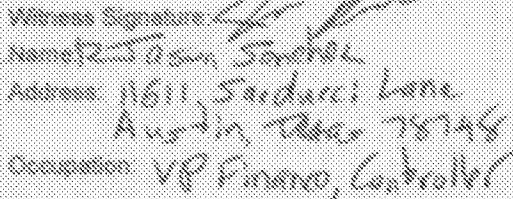 Witness Signature:
Name: Jason
Address: 11611, Lane
Austin, Texas 78748
Occupation: VP Finance, Controller